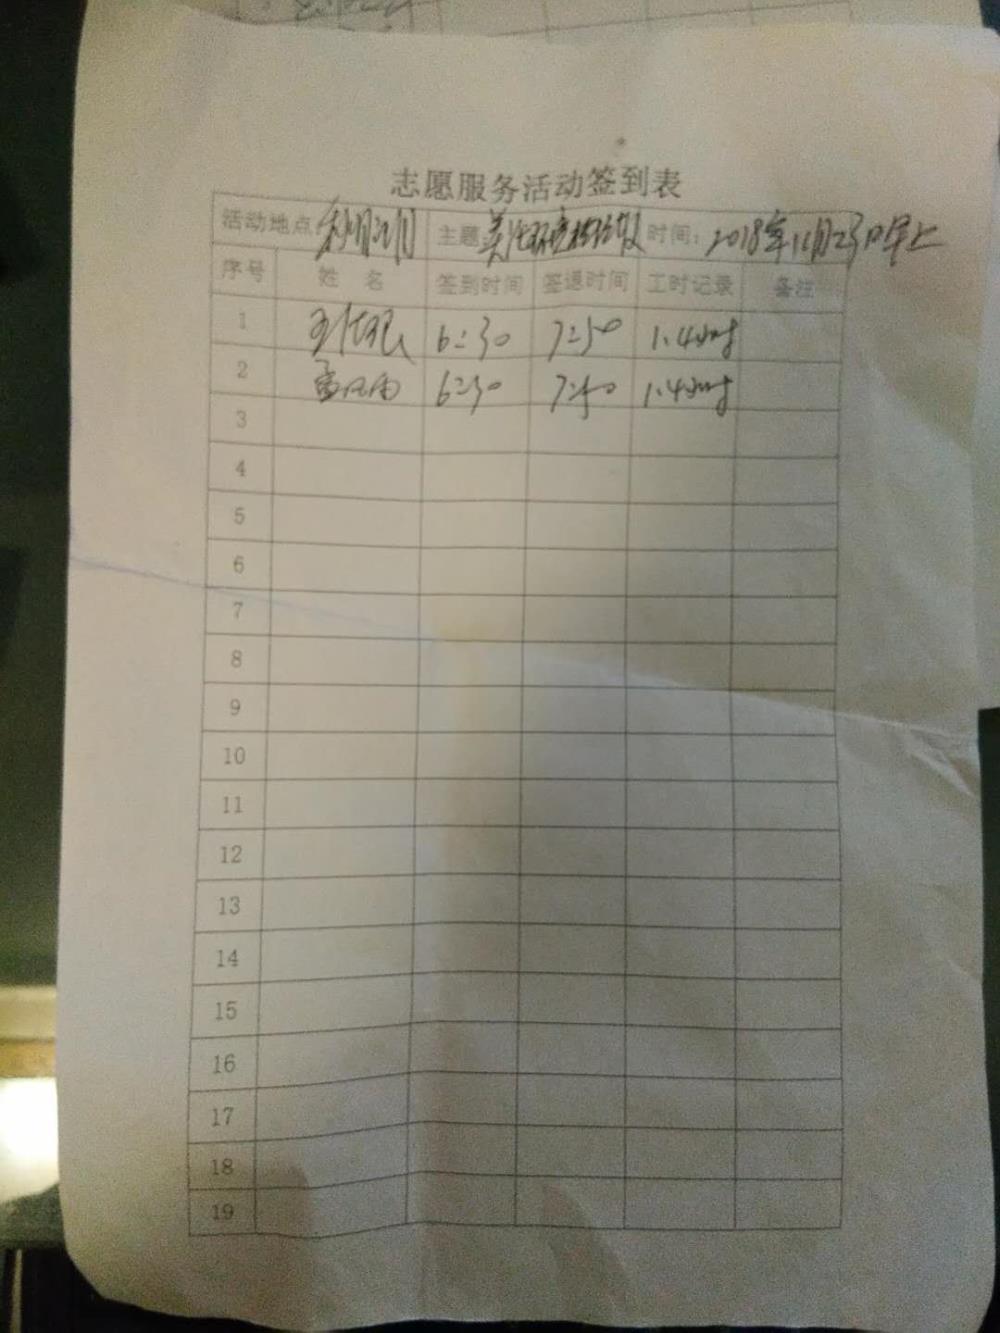 志愿服务活动签到表
活动地点 主题 美化环境 时间: 2018年11月23日早上
序号 姓 名 签到时间 签退时间 工时记录 备注
1 6:30 7:50 1.4小时
2 6:30 7:50 1.4小时
3
4
5
6
7
8
9
10
11
12
13
14
15
16
17
18
19